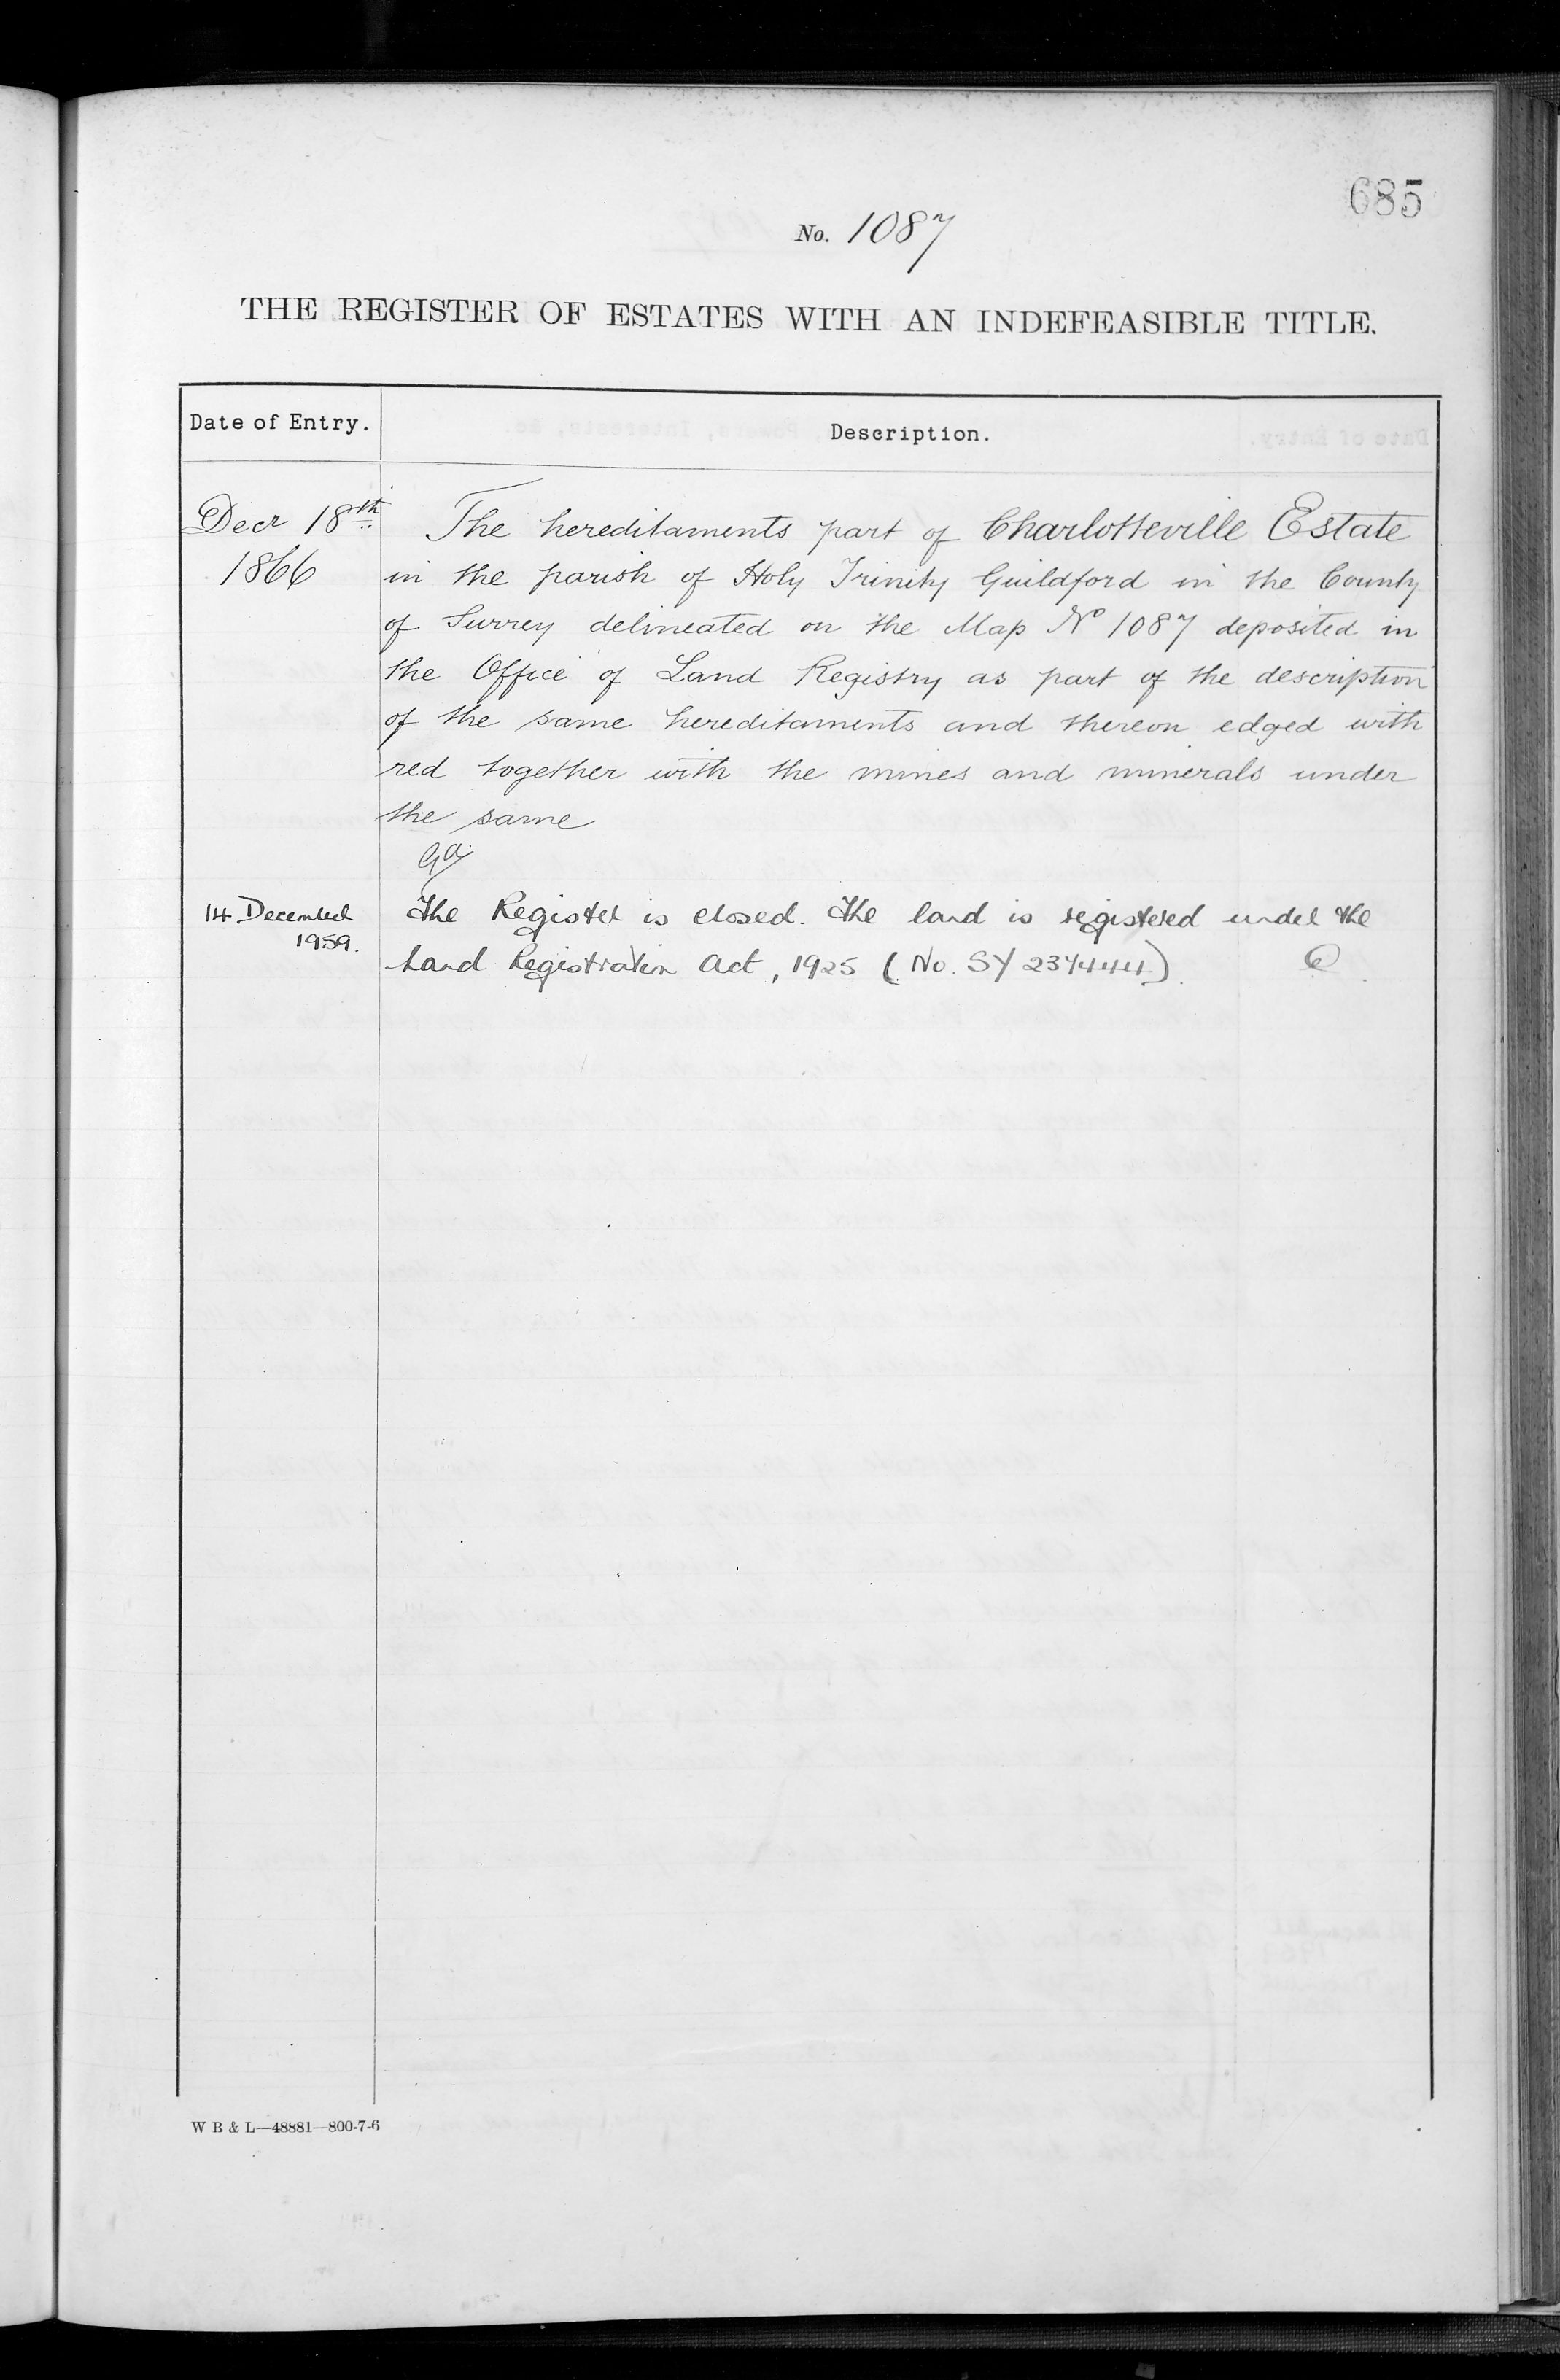 685
No. 1087
THE REGISTER OF ESTATES WITH AN INDEFEASIBLE TITLE.
Date of Entry.
Description.
Decr 18th
1866
The hereditaments part of Charlotteville Estate
in the parish of Holy Trinity Guildford in the County
of Surrey delineated on the Map No 1087 deposited in
the Office of Land Registry as part of the description
of the same hereditaments and thereon edged with
red together with the mines and minerals under
the same
14 December
1959.
The Register is closed. The land is registered under the
Land Registration Act, 1925 (No. SY 237444).
W B & L—48881—800-7-6